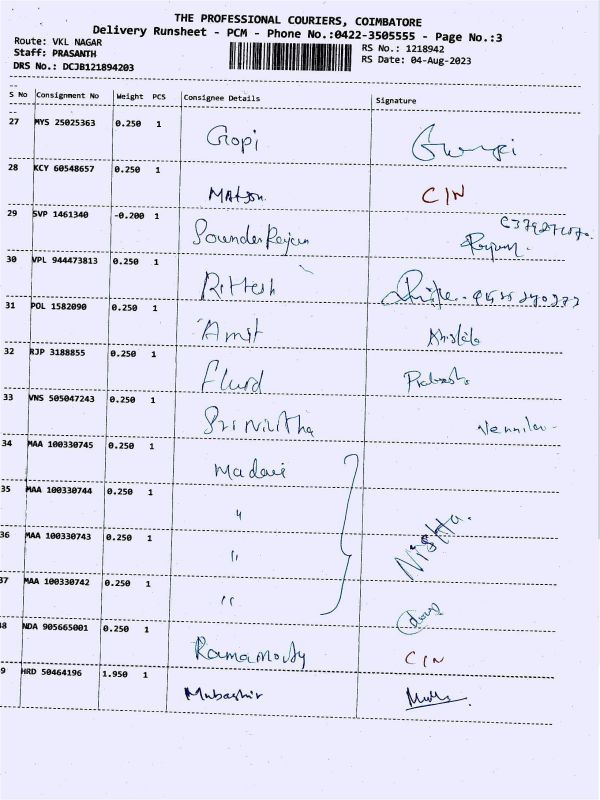 THE PROFESSIONAL COURIERS, COIMBATORE
Delivery Runsheet - PCM - Phone No.:0422-3505555 - Page No.:3
Route: VKL NAGAR
RS No.: 1218942
Staff: PRASANTH
RS Date: 04-Aug-2023
DRS No.: DCJB121894203
S No Consignment No Weight PCS Consignee Details Signature
27 MYS 25025363 0.250 1 Gopi
28 KCY 60548657 0.250 1 C/N
29 SVP 1461340 -0.200 1 Sounder Rajan
30 VPL 944473813 0.250 1 Rittesh
31 POL 1582090 0.250 1 Amit
32 RJP 3188855 0.250 1 Fluid Prakash
33 VNS 505047243 0.250 1 Sri Nivitha Vennila
34 MAA 100330745 0.250 1 Madavi
35 MAA 100330744 0.250 1 "
36 MAA 100330743 0.250 1 " Nishha.
37 MAA 100330742 0.250 1 "
38 NDA 905665001 0.250 1 Ramamorty C/N
9 HRD 50464196 1.950 1 Mubashir